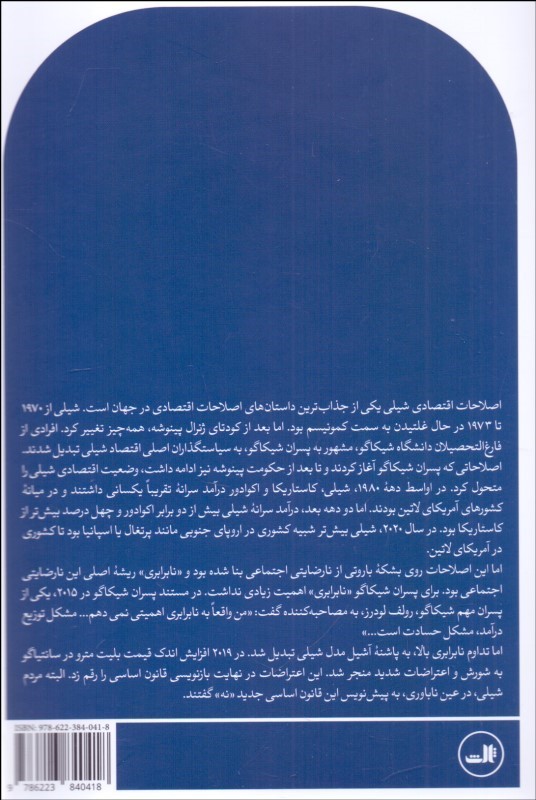 اصلاحات اقتصادی شیلی یکی از جذاب‌ترین داستان‌های اصلاحات اقتصادی در جهان است. شیلی از ۱۹۷۰
تا ۱۹۷۳ در حال غلتیدن به سمت کمونیسم بود. اما بعد از کودتای ژنرال پینوشه، همه‌چیز تغییر کرد. افرادی از
فارغ‌التحصیلان دانشگاه شیکاگو، مشهور به پسران شیکاگو، به سیاستگذاران اصلی اقتصاد شیلی تبدیل شدند.
اصلاحاتی که پسران شیکاگو آغاز کردند و تا بعد از حکومت پینوشه نیز ادامه داشت، وضعیت اقتصادی شیلی را
متحول کرد. در اواسط دههٔ ۱۹۸۰، شیلی، کاستاریکا و اکوادور درآمد سرانهٔ تقریباً یکسانی داشتند و در میانهٔ
کشورهای آمریکای لاتین بودند. اما دو دهه بعد، درآمد سرانهٔ شیلی بیش از دو برابر اکوادور و چهل درصد بیش‌تر از
کاستاریکا بود. در سال ۲۰۲۰، شیلی بیش‌تر شبیه کشوری در اروپای جنوبی مانند پرتغال یا اسپانیا بود تا کشوری
در آمریکای لاتین.
اما این اصلاحات روی بشکهٔ باروتی از نارضایتی اجتماعی بنا شده بود و «نابرابری» ریشهٔ اصلی این نارضایتی
اجتماعی بود. برای پسران شیکاگو «نابرابری» اهمیت زیادی نداشت. در مستند پسران شیکاگو در ۲۰۱۵، یکی از
پسران مهم شیکاگو، رولف لودرز، به مصاحبه‌کننده گفت: «من واقعاً به نابرابری اهمیتی نمی‌دهم... مشکل توزیع
درآمد، مشکل حسادت است...»
اما تداوم نابرابری بالا، به پاشنهٔ آشیل مدل شیلی تبدیل شد. در ۲۰۱۹ افزایش اندک قیمت بلیت مترو در سانتیاگو
به شورش و اعتراضات شدید منجر شد. این اعتراضات در نهایت بازنویسی قانون اساسی را رقم زد. البته مردم
شیلی، در عین ناباوری، به پیش‌نویس این قانون اساسی جدید «نه» گفتند.
ISBN: 978-622-384-041-8
9 786223 840418
ثالث